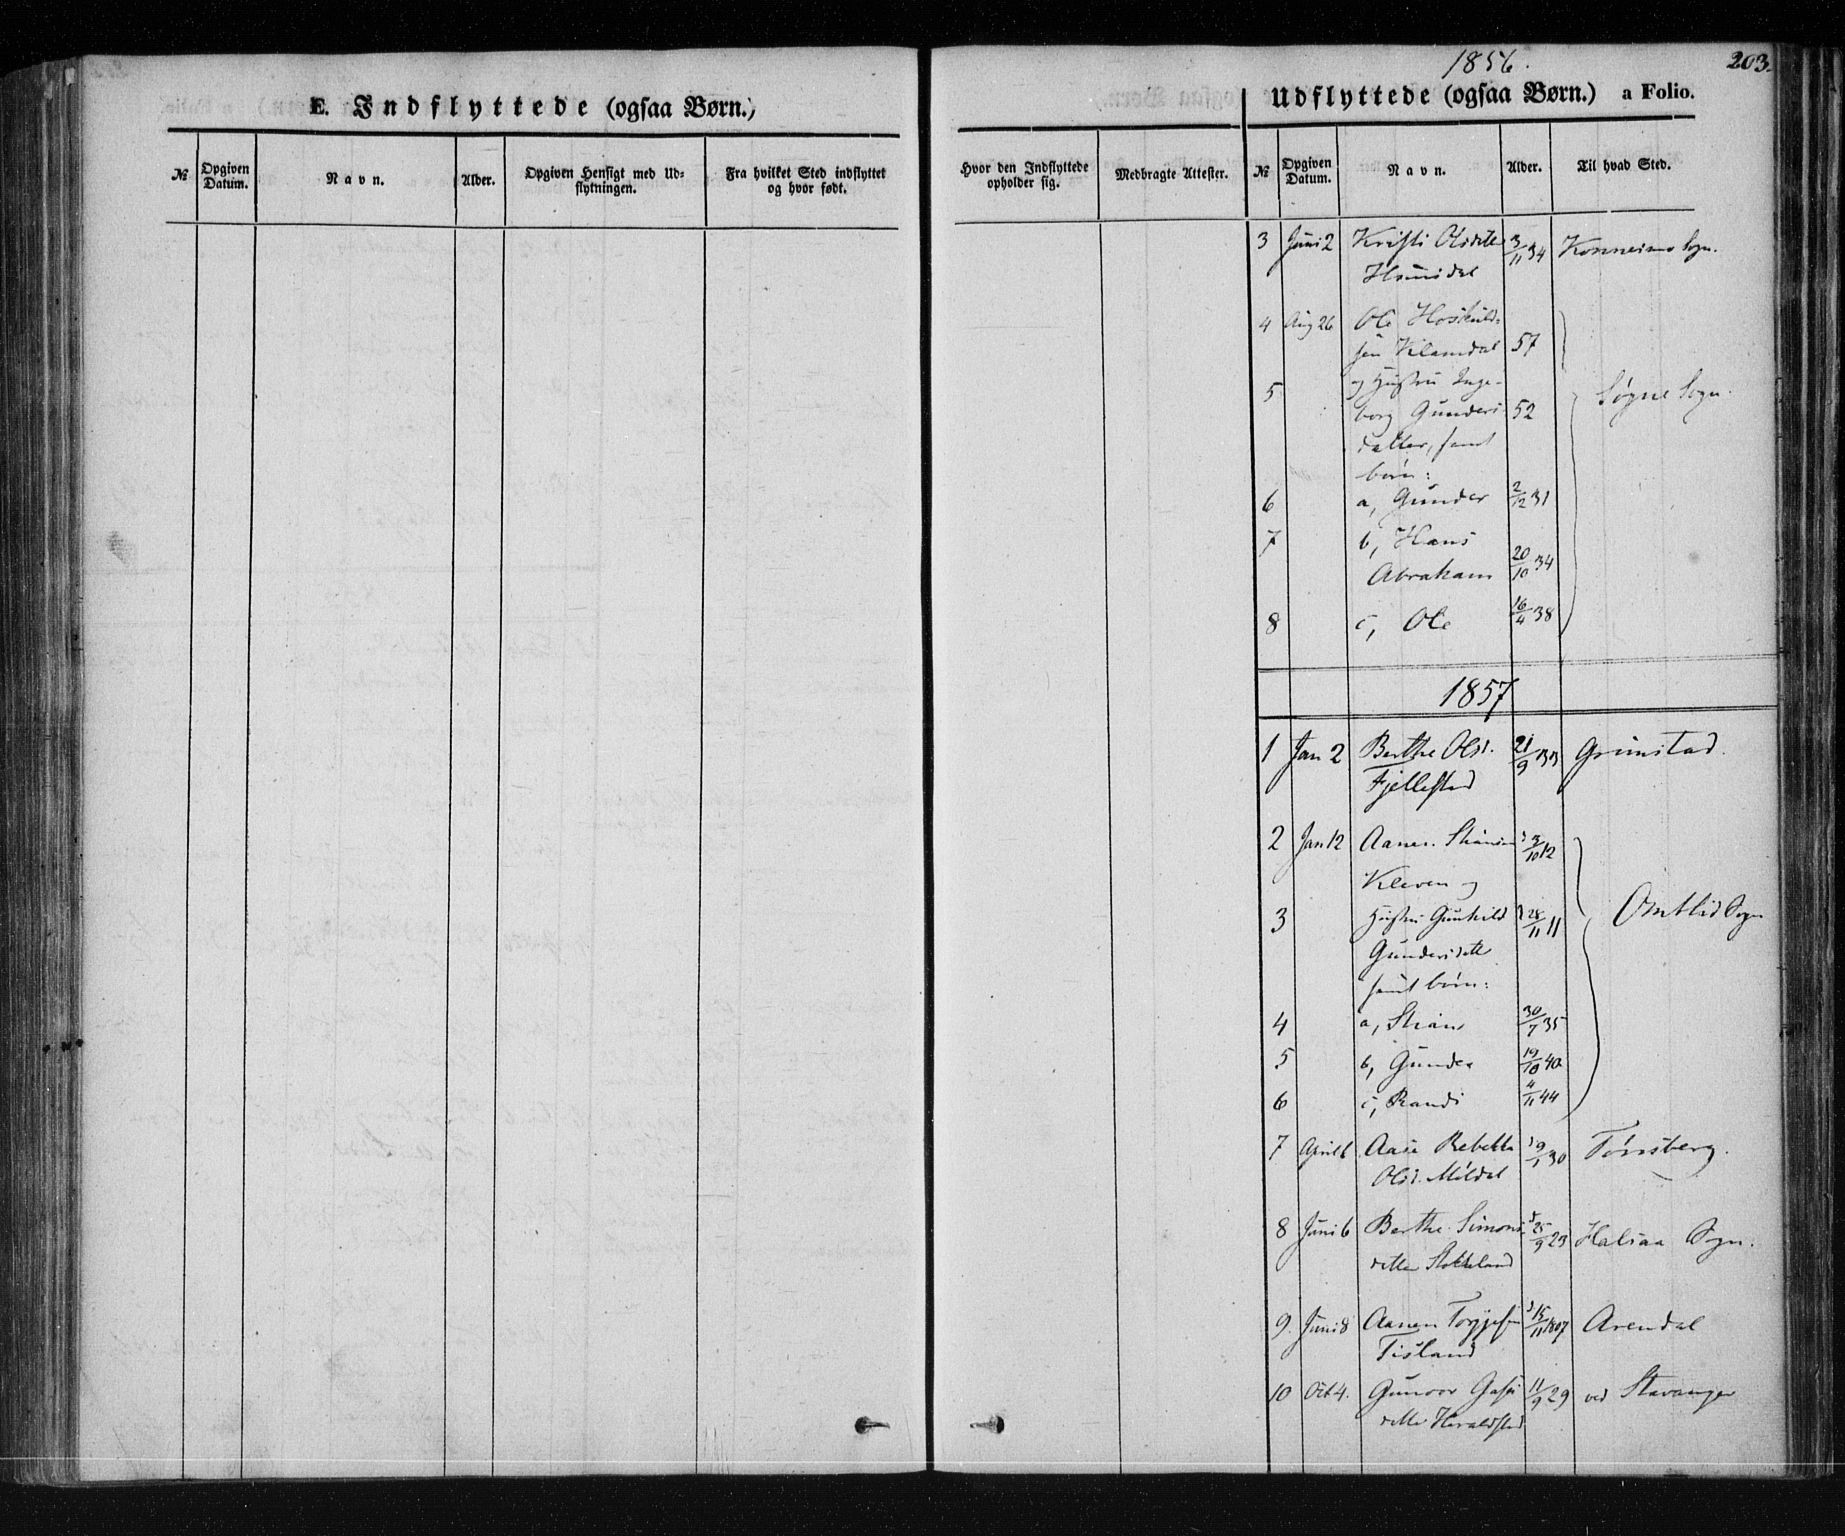 1856.
203.
E. Indflyttede (ogsaa Børn.)
Udflyttede (ogsaa Børn.) a Folio.
№ Opgiven Datum. Navn. Alder. Opgiven Hensigt med Udflytningen. Fra hvilket Sted indflyttet og hvor født.
Hvor den Indflyttede opholder sig. Medbragte Attester. № Opgiven Datum. Navn. Alder. Til hvad Sted.
3 Juni 2 Kristi Olsdtter 3/11 34 Konnesmo Sogn.
4 Aug 26 Ole Hoskuld-
sen Klamdal 57
5 og Hustru Inge-
borg Gunders 52 Søgne Sogn.
datter, samt
børn:
6 a, Gunder 2/12 31
7 b, Hans
Abraham 20/10 34
8 c, Ole 16/4 38
1857
1 Jan 2 Berthe Olsd. 21/9 33 Grimstad.
Fjellestad
2 Jan 12 Aanen 3/10 12
Kleven og
3 Hustru Gunhild 28/11 11 Omtlid Sogn
Gundersdttr
samt børn:
4 a, 30/7 35
5 b, Gunder 19/10 40
6 c, Randi 4/11 44
7 April 6 Aase Rebekka 9/1 30 Tønsberg.
Olsd. Møldal
8 Juni 6 Berthe Simons- 25/9 29 Halsaa Sogn.
datter Stokkeland
9. Juni 8 Aanen Torjesen 15/11 1807 Arendal
Tisland
10 Oct 4. Gunvor 11/9 29 ved Stavanger
dttr Heraldstad